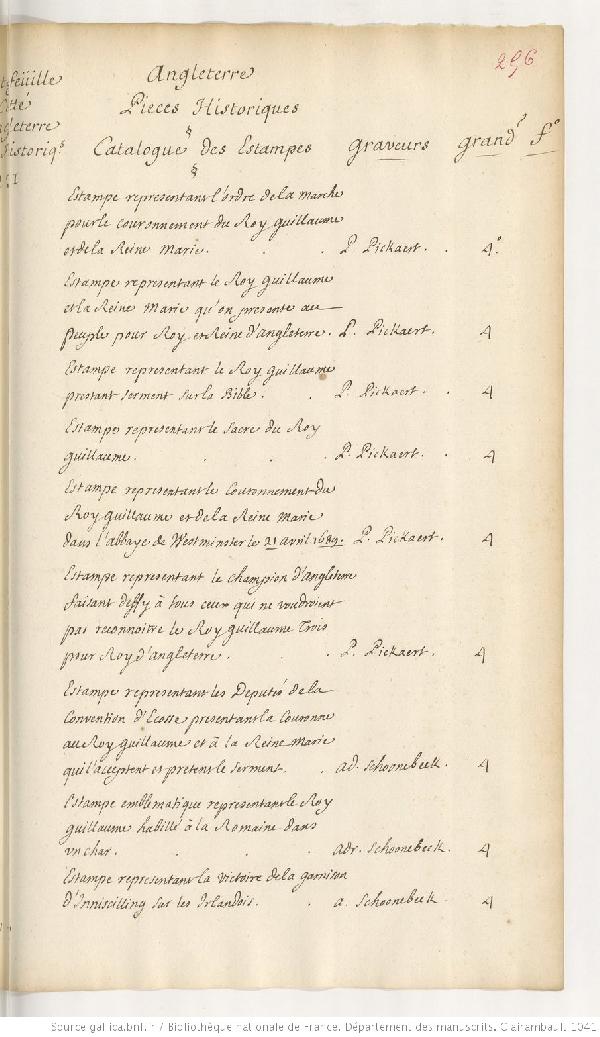 296
Angleterre
Pieces Historiques
Catalogue des Estampes graveurs grandr fo
Estampe representant l'ordre de la marche
pour le couronnement du Roy guillaume
et de la Reine Marie. . . P. Pickaert. . 4o.
Estampe representant le Roy guillaume
et la Reine Marie qu'on presente au
peuple pour Roy et Reine d'angleterre. P. Pickaert. 4
Estampe representant le Roy guillaume
prestant serment sur la Bible. . P. Pickaert. . 4
Estampe representant le Sacre du Roy
guillaume. . . . P. Pickaert. . 4
Estampe representant le Couronnement du
Roy guillaume et de la Reine Marie
dans l'abbaye de Westminster le 21 avril 1689. P. Pickaert. 4
Estampe representant le champion d'angleterre
faisant deffy à tous ceux qui ne voudroient
pas reconnoitre le Roy guillaume Trois
pour Roy d'angleterre. . . P. Pickaert. 4
Estampe representant les Deputés de la
Convention d'Ecosse presentant la Couronne
au Roy guillaume et à la Reine Marie
qui l'acceptent et pretent le serment. . ad. schoonebeek. 4
Estampe emblematique representant le Roy
guillaume habillé à la Romaine dans
un char. . . . adr. schoonebeek. 4
Estampe representant la victoire de la garnison
d'Inniscilling sur les Irlandois. . a. schoonebeek . 4
feüille
gleterre
istoriqs
Source gallica.bnf.fr / Bibliothèque nationale de France. Département des manuscrits. Clairambault 1041